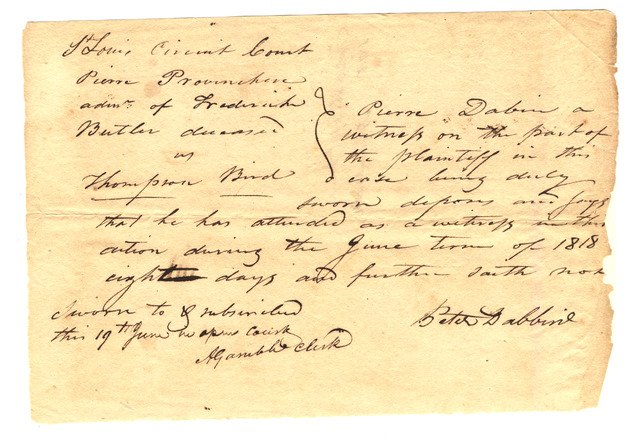 St Louis Circuit Court
Pierre Provenchere
admr. of Frederick
Butler deceased
vs
Thompson Bird
Pierre Dabin a
witness on the part of
the plaintiff in this
case being duly
sworn deposes and says
that he has attended as a witness in this
action during the June term of 1818
eight days and further saith not
Sworn to & subscribed
this 19th June in open Court
A Gamble Clerk
Peter Dabbine